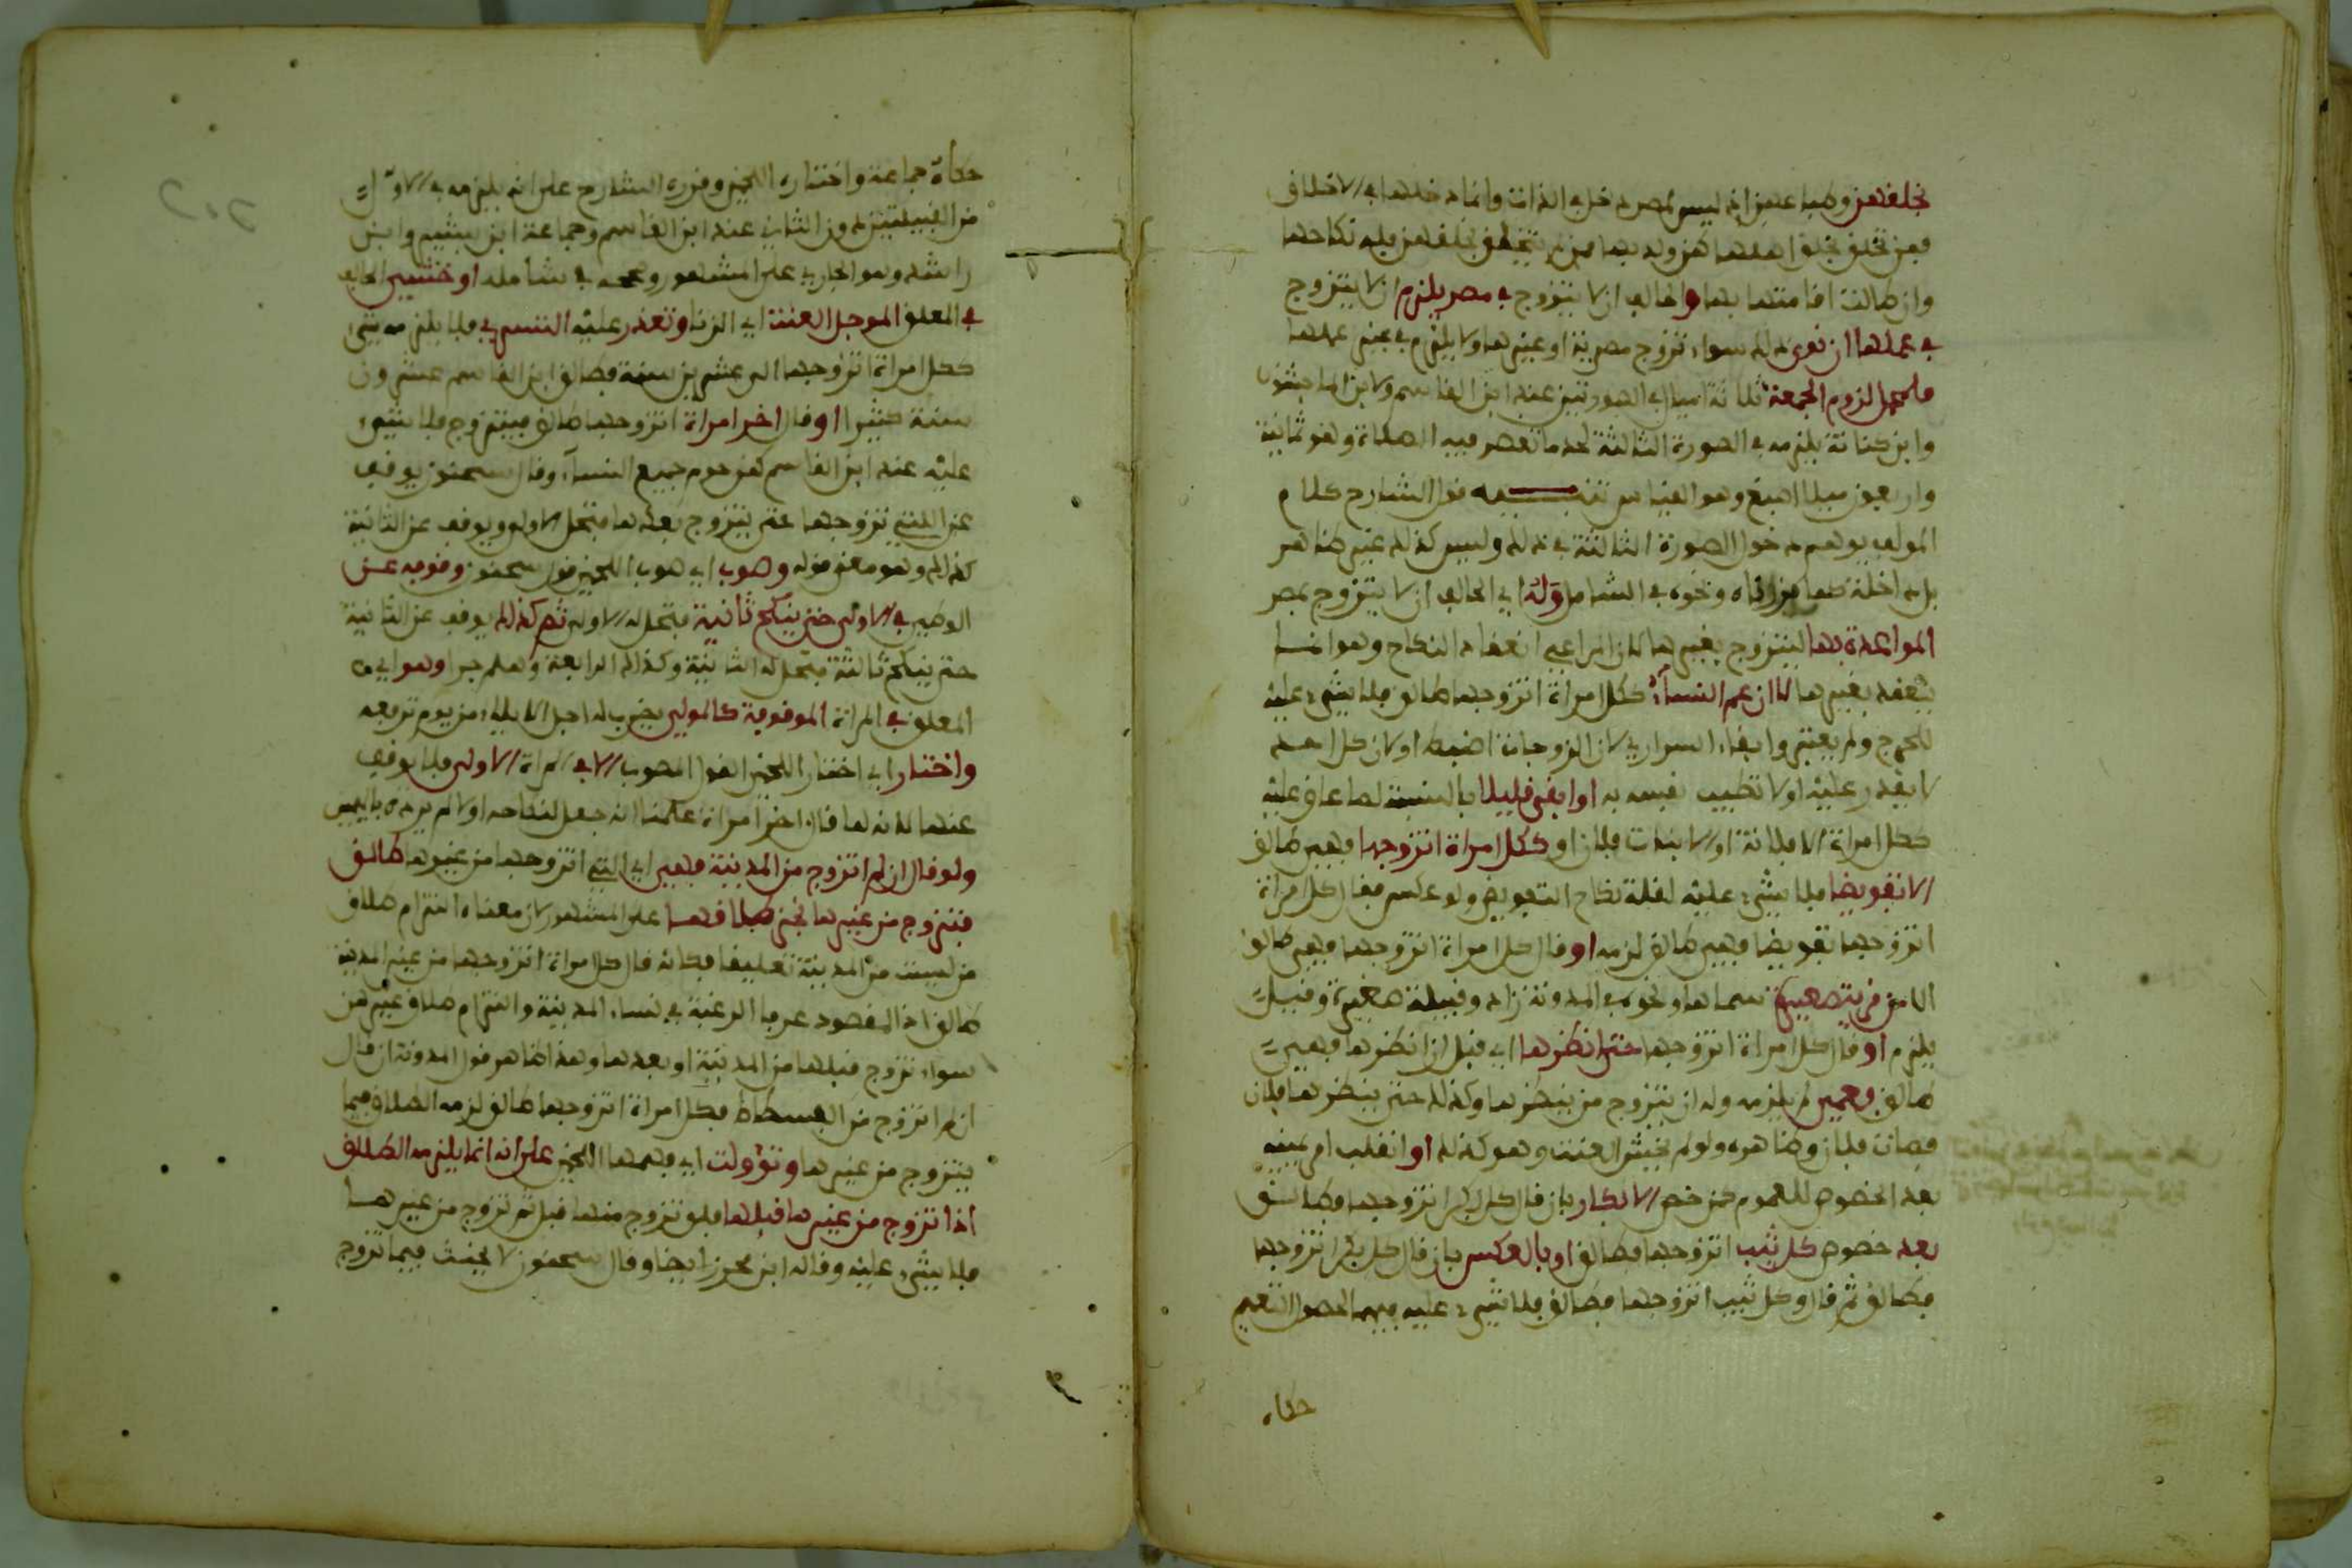 بخلقهن وظاهره انه ليس لمصر دخل في الذات وانما دخلها في الاخلاق
فمن تخلق بخلق اهلها كهن ولد بها فمن لم يتخلق بخلقهن فله نكاحها
وان طالت اقامتها بها والحالف ان لا يتزوج في مصر يلزم ان لا يتزوج
في عملها ان نوى ذلك سواء تزوج مصرية او غيرها ولا يلزم في غير عملها
فلمحل لزوم الجمعة ثلاثة اميال في الصورتين عند ابن القاسم ولابن الماجشون
وابن كنانة يلزمه في الصورة الثالثة لحد ما تقصر فيه الصلاة وهو ثمانية
واربعون ميلا اصبغ وهو القياس تنبيه قول الشارح كلام
المولف يوهم دخول الصورة الثالثة في ذلك وليس كذلك غير ظاهر
بل داخلة كما قررناه ونحوه في الشامل وله اي الحالف ان لا يتزوج بمصر
المواعدة بها ليتزوج بغيرها لان المراعى انعقاد النكاح وهو انما
يعقد بغيرها لا ان عم النساء ككل امراة اتزوجها طالق فلا شيء عليه
للحرج ولم يعتبر وابقاء السراري لان الزوجات اضبط او لان كل احد
لا يقدر عليه او لا تطيب نفسه به او ابقى قليلا بالنسبة لما علق عليه
ككل امراة الا فلانة او الا بنات فلان او ككل امراة اتزوجها فهي طالق
الا تفويضا فلا شيء عليه لقلة نكاح التفويض ولو عكس فقال كل امراة
اتزوجها تفويضا فهي طالق لزمه او قال كل امراة اتزوجها فهي طالق
الا من قرية صغيرة سماها ونحوه في المدونة زاد وقبيلة صغيرة وقيل
يلزم او قال كل امراة اتزوجها حتى انظرها اي قبل ان انظرها فهي
طالق فعمي لم يلزمه وله ان يتزوج من ينظرها وكذلك حتى ينظرها فلان
فمات فلان وظاهره ولو لم يخش العنت وهو كذلك او انقلب امر يمينه
بعد الخصوص للعموم كمن خص الابكار بان قال كل بكر اتزوجها فطالق
بعد خصوص كل ثيب اتزوجها فطالق او بالعكس بان قال كل بكر اتزوجها
فطالق ثم قال وكل ثيب اتزوجها فطالق فلا شيء عليه فيهما لحصول التعميم
حكاه
حكاه جماعة واختاره اللخمي وقرره الشارح على انه يلزمه في الاول
من القبيلتين دون الثاني عند ابن القاسم وجماعة ابن بشير وابن
راشد وهو الجاري على المشهور وصححه في شامله او خشي الحالف
في المعلق الموجل العنت اي الزنا وتعذر عليه التسري فلا يلزمه شيء
ككل امراة اتزوجها الى عشرين سنة فطالق ابن القاسم عشرون
سنة كثير او قال اخر امراة اتزوجها طالق فيتزوج فلا شيء
عليه عند ابن القاسم كمن حرم جميع النساء وقال سحنون يوقف
عن التي تزوجها حتى يتزوج بعدها فتحل الاولى ويوقف عن الثانية
كذلك وهو معنى قوله وصوب اي صوب اللخمي قول سحنون وقوفه عن
الوطء في الاولى حتى ينكح ثانية فتحل له الاولى ثم كذلك يوقف عن الثانية
حتى ينكح ثالثة فتحل له الثانية وكذلك الرابعة وهلم جرا وهو اي
المعلق في المراة الموقوفة كالمولي يضرب له اجل الايلاء من يوم ترفعه
واختار اي اختار اللخمي القول المصوب الا في المراة الاولى فلا يوقف
عنها لانه لما قال اخر امراة علمنا انه جعل لنكاحه اولا لم يرده باليمين
ولو قال ان لم اتزوج من المدينة فهي اي التي اتزوجها من غيرها طالق
فتزوج من غيرها نجز طلاقها على المشهور لان معناه التزام طلاق
من ليست من المدينة تعليقا فكانه قال كل امراة اتزوجها من غير المدينة
طالق اذ المقصود عرفا الرغبة في نساء المدينة والتزام طلاق غيرهن
سواء تزوج قبلها من المدينة او بعدها وهذا ظاهر قول المدونة ان قال
ان لم اتزوج من الفسطاط فكل امراة اتزوجها طالق لزمه الطلاق فيما
يتزوج من غيرها وتؤولت اي فهمها اللخمي على انه انما يلزمه الطلاق
اذا تزوج من غيرها قبلها فلو تزوج منها قبل ثم تزوج من غيرها
فلا شيء عليه وقاله ابن محرز ايضا وقال سحنون لا يحنث فيما تزوج